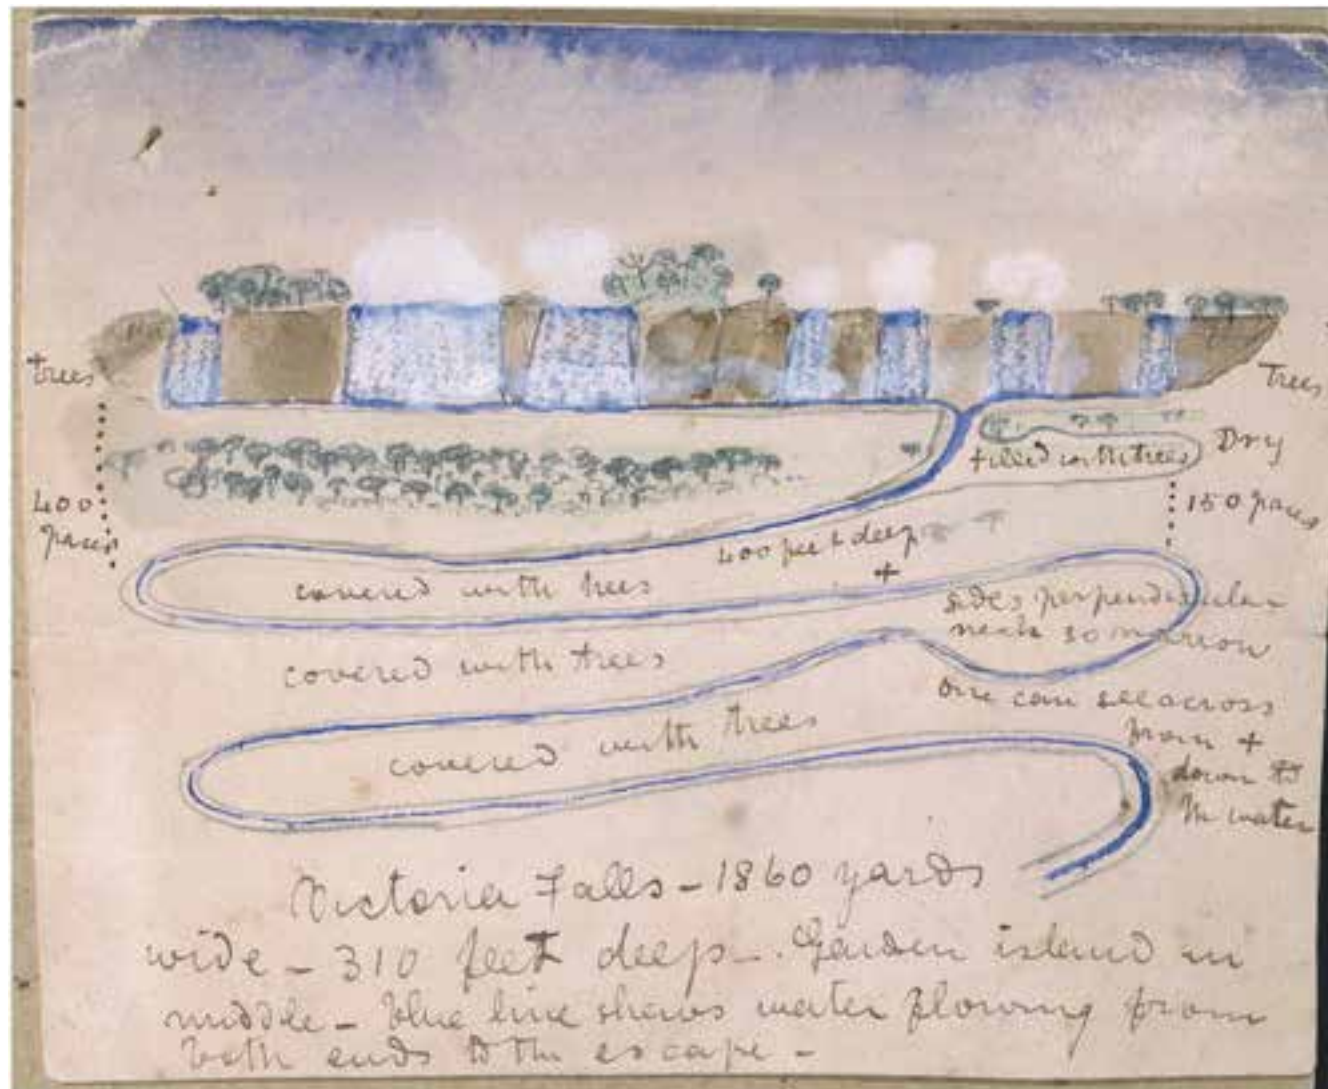 +
trees
Trees
Dry
filled with trees
400
paces
150 paces
400 feet deep
+
covered with trees
sides perpendicular
neck so narrow
covered with trees
one can see across
from +
down to
the water
covered with trees
Victoria Falls - 1860 yards
wide - 310 feet deep - Garden island in
middle - blue line shews water flowing from
both ends to the escape -